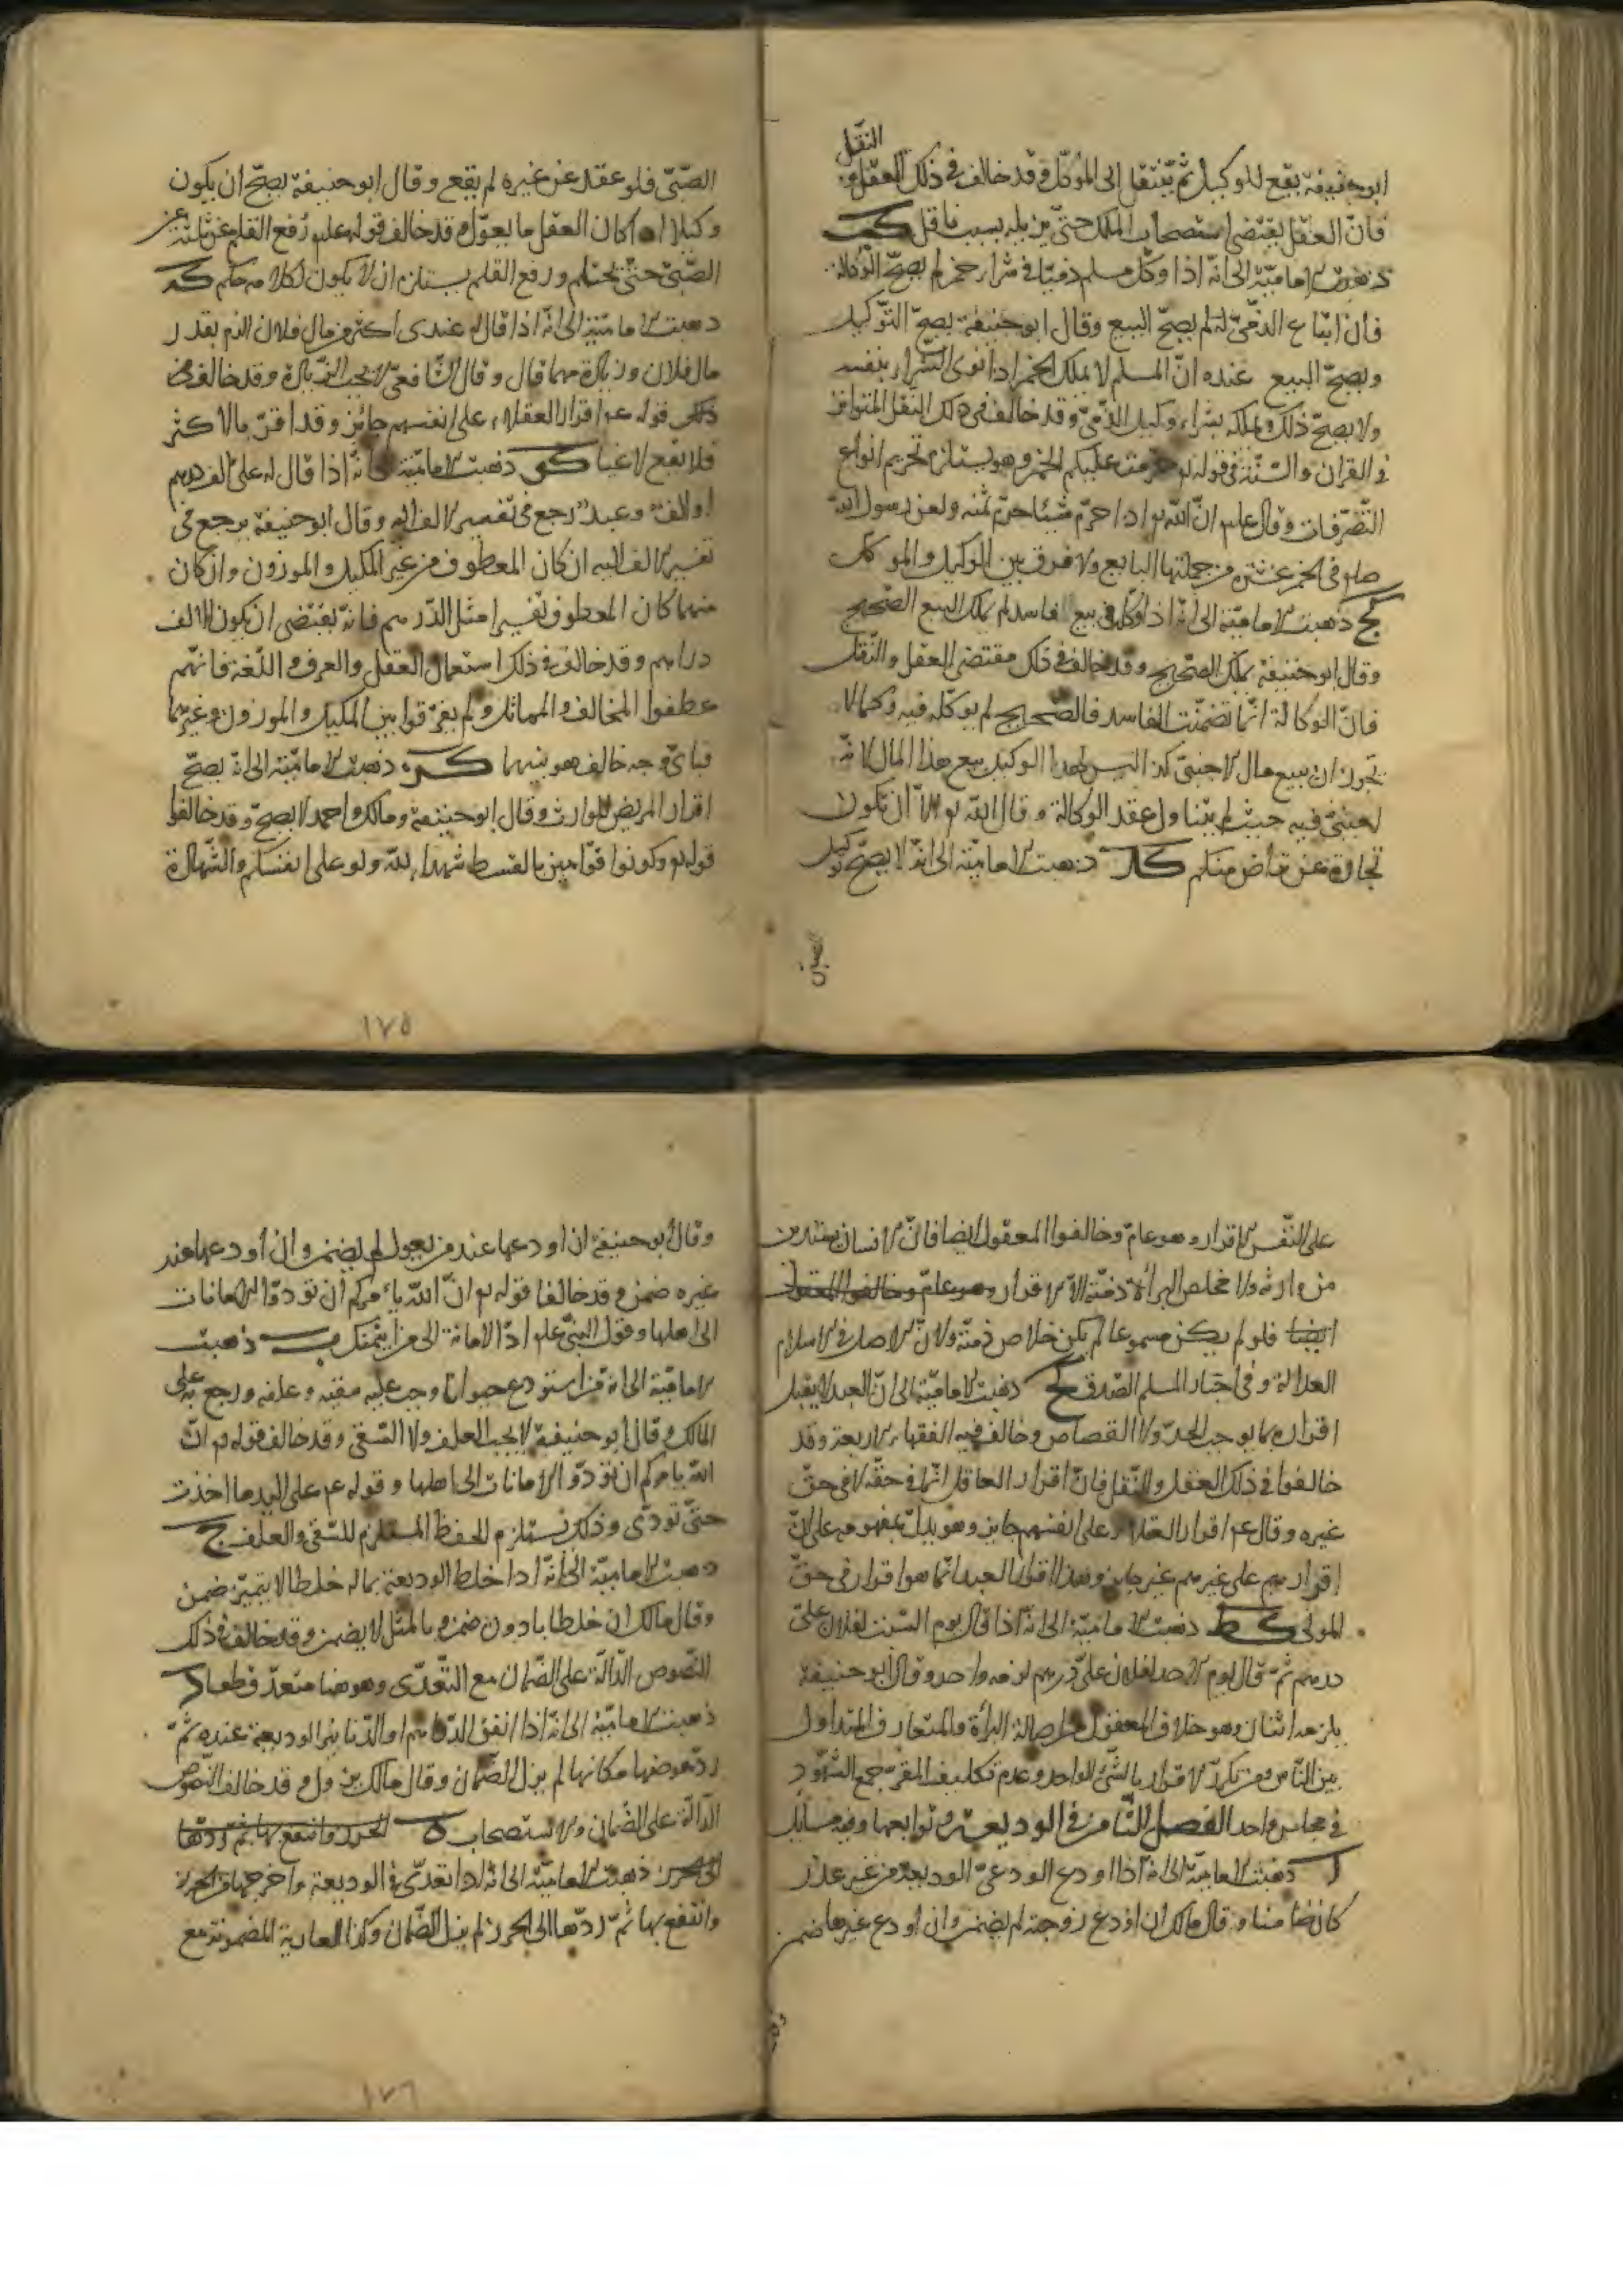 النقل
ابو حنيفة يقع للوكيل ثم ينتقل الى الموكّل وقد خالف في ذلك العقل و
فانّ العقل يقتضى استصحاب الملك حتى يزيله بسبب ناقل كب
ذهبت الاماميّة الى انّه اذا وكّل مسلم ذميّا في شراء خمر لم يصحّ الوكالة
فان ابتاع الذمّيّ له لم يصحّ البيع وقال ابو حنيفة يصحّ التوكيل
ويصحّ البيع عنده انّ المسلم لا يملك الخمر اذا نوى الشراء بنفسه
ولا يصحّ ذلك ويملكه بشراء وكيله الذّمّيّ وقد خالف في ذلك النقل المتواتر
في القران والسّنّة في قوله تع حرمت عليكم الخمر وهو يستلزم تحريم انواع
التّصرّفات وقال عليه انّ الله تع اذا حرّم شيئا حرّم ثمنه ولعن رسول الله
صلم في الخمر عشرة من جملتها البايع ولا فرق بين الوكيل والموكل
كج ذهبت الاماميّة الى انّه اذا وكّله في بيع الفاسد لم يملك البيع الصّحيح
وقال ابو حنيفة يملك الصّحيح وقد خالف في ذلك مقتضى العقل والنّقل
فانّ الوكالة انّما تضمنّت الفاسد فالصّحيح لم يوكله فيه وكما لا
يجوز ان يبيع مال الاجنبيّ كذا ليس لهذا الوكيل بيع هذا المال لانّه
اجنبيّ فيه حيث لم يتناوله عقد الوكالة وقال الله تع الّا ان تكون
تجارة عن تراض منكم كد ذهبت الاماميّة الى انّه لا يصحّ توكيل
الصّبيّ فلو عقد عن غيره لم يقع وقال ابو حنيفة يصحّ ان يكون
وكيلا اذا كان العقل ما يعوّل وقد خالف قوله عليه رُفع القلم عن ثلثة عن
الصّبيّ حتّى يحتلم ورفع القلم يستلزم ان لا يكون لكلامه حكم كه
ذهبت الاماميّة الى انّه اذا قال له عندى اكثر من مال فلان الزم بقدر
مال فلان وزيادة مهما قال وقال الشّافعيّ لا يجب الزيادة وقد خالف في
ذلك قوله عم اقرار العقلاء على انفسهم جائز وقد اقرّ بالاكثر
فلا يقع لاغيا كو ذهبت الاماميّة الى انّه اذا قال له علىّ الف ودرهم
او الف وعبد رجع في تفسير الالف اليه وقال ابو حنيفة يرجع في
تفسير الالف اليه ان كان المعطوف من غير المكيل والموزون وان كان
منهما كان المعطوف تفسيرا مثل الدّرهم فانّه يقتضى ان يكون الالف
دراهم وقد خالف في ذلك استعمال العقل والعرف واللّغة فانّهم
عطفوا المخالف والمماثل ولم يفرّقوا بين المكيل والموزون وغيرهما
فباىّ وجه خالف هو بينهما كز ذهبت الاماميّة الى انّه يصحّ
اقرار المريض للوارث وقال ابو حنيفة ومالك واحمد لا يصحّ وقد خالفوا
قوله تع وكونوا قوّامين بالقسط شهداء لله ولو على انفسكم والشّهادة
١٧٥
على النّفس الاقرار وهو عامّ وخالفوا المعقول ايضا فانّ الانسان يستدين
من وارثه ولا مخلص لبرأة ذمّته الّا الاقرار وهو عامّ وخالفوا المعقول
ايضا فلو لم يكن مسموعا لم يكن خلاص ذمّته ولانّ الاصل في الاسلام
العدالة وفي اخبار المسلم الصّدق كح ذهبت الاماميّة الى انّ العبد لا يقبل
اقراره بما يوجب الحدّ ولا القصاص وخالف فيه الفقهاء الاربعة وقد
خالفوا في ذلك العقل والنّقل فانّ اقرار العاقل انّما في حقّه لا في حقّ
غيره وقال عم اقرار العقلاء على انفسهم جايز وهو يدلّ بمفهومه على انّ
اقرارهم على غيرهم غير جايز وهذا اقرار العبد انّما هو اقرار في حقّ
المولى كط ذهبت الاماميّة الى انّه اذا قال يوم السّبت لفلان علىّ
درهم ثمّ قال يوم الاحد لفلان علىّ درهم لزمه واحد وقال ابو حنيفة
يلزمه اثنان وهو خلاف المعقول من اصالة البرأة والمتعارف المتداول
بين النّاس من تكرّر الاقرار بالشّئ الواحد وعدم تكليف المقرّ جمع الشّهود
في مجلس واحد الفصل الثّامن في الوديعة وتوابعها وفيه مسايل
ا ذهبت الاماميّة الى انّه اذا اودع الودعيّ الوديعة من غير عذر
كان ضامنا وقال مالك ان اودع زوجته لم يضمن وان اودع غيرها ضمن
وقال ابو حنيفة ان اودعها عند من يعوله لم يضمن وان اودعها عند
غيره ضمن وقد خالفا قوله تع انّ الله يأمركم أن تؤدّوا الامانات
الى اهلها وقول النبيّ عليه ادّ الامانة الى من ائتمنك ب ذهبت
الاماميّة الى انّه من استودع حيوانا وجب عليه سقيه وعلفه ورجع به على
المالك وقال ابو حنيفة لا يجب العلف ولا السّقى وقد خالف قوله تع انّ
الله يامركم ان تؤدّوا الامانات الى اهلها وقوله عم على اليد ما اخذت
حتّى تؤدّى وذلك يستلزم الحفظ المستلزم للسّقى والعلف ج
ذهبت الاماميّة الى انّه اذا خلط الوديعة بماله خلطا لا يتميّز ضمن
وقال مالك ان خلطها بادون ضمن وبالمثل لا يضمن وقد خالف في ذلك
النّصوص الدّالّة على الضّمان مع التّعدّى وهو هنا متعدّ قطعا د
ذهبت الاماميّة الى انّه اذا انفق الدّراهم او الدّنانير الوديعة عنده ثمّ
ردّ عوضها مكانها لم يزل الضّمان وقال مالك يزول وقد خالف النّصوص
الدّالّة على الضّمان والاستصحاب ه الحرز وانتفع بها ثمّ ردّها
الى الحرز ذهبت الاماميّة الى انّه اذا تعدّى في الوديعة واخرجها من الحرز
وانتفع بها ثمّ ردّها الى الحرز لم يزل الضّمان وكذا العارية المضمونة مع
١٧٦